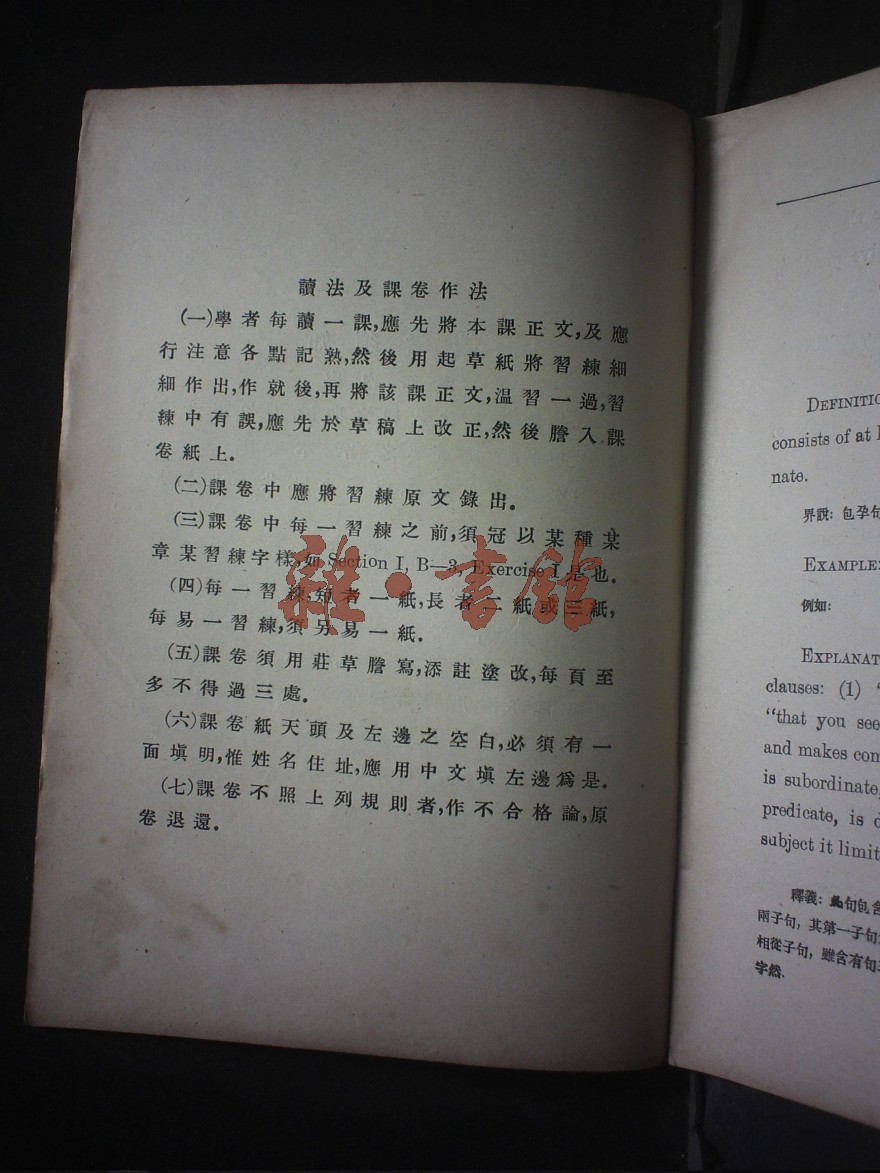 讀法及課卷作法
(一)學者每讀一課,應先將本課正文,及應
行注意各點記熟,然後用起草紙將習練細
細作出,作就後,再將該課正文,温習一過,習
練中有誤,應先於草稿上改正,然後謄入課
卷紙上.
(二)課卷中應將習練原文錄出.
(三)課卷中每一習練之前,須冠以某種某
章某習練字樣,如 Section I, B—3, Exercise I 是也.
(四)每一習練,短者一紙,長者二紙或三紙,
每易一習練,須另易一紙.
(五)課卷須用莊草謄寫,添註塗改,每頁至
多不得過三處.
(六)課卷紙天頭及左邊之空白,必須有一
面塡明,惟姓名住址,應用中文塡左邊爲是.
(七)課卷不照上列規則者,作不合格論,原
卷退還.
雜·書館
DEFINITIO
consists of at
nate.
界説: 包孕句
EXAMPLE
例如:
EXPLANAT
clauses: (1)
"that you see
and makes com
is subordinate,
predicate, is
subject it limit
釋義: 句包含
兩子句, 其第一子句
相從子句, 雖含有句
字然.